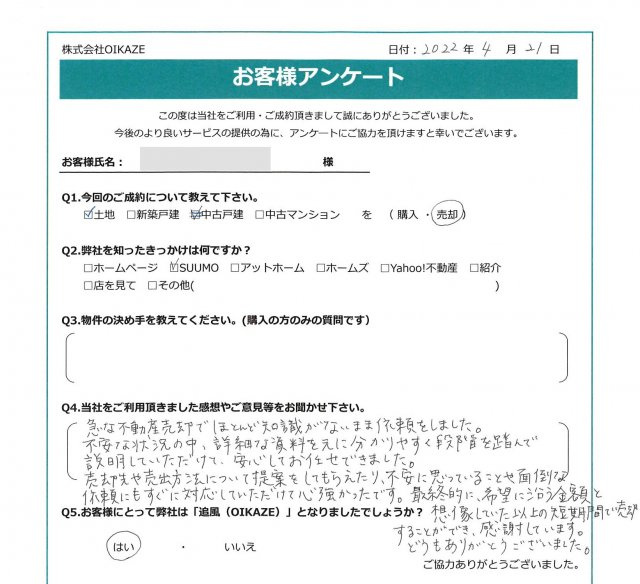 株式会社OIKAZE
日付：2022 年 4 月 21 日
お客様アンケート
この度は当社をご利用・ご成約頂きまして誠にありがとうございました。
今後のより良いサービスの提供の為に、アンケートにご協力を頂けますと幸いでございます。
お客様氏名： 様
Q1.今回のご成約について教えて下さい。
☑土地 □新築戸建 ☑中古戸建 □中古マンション を （ 購入 ・ 売却 ）
Q2.弊社を知ったきっかけは何ですか？
□ホームページ ☑SUUMO □アットホーム □ホームズ □Yahoo!不動産 □紹介
□店を見て □その他( )
Q3.物件の決め手を教えてください。(購入の方のみの質問です）
Q4.当社をご利用頂きました感想やご意見等をお聞かせ下さい。
急な不動産売却でほとんど知識がないまま依頼をしました。
不安な状況の中、詳細な資料を元に分かりやすく段階を踏んで
説明していただけて、安心してお任せできました。
売却先や売出方法について提案をしてもらえたり、不安に思っていることや面倒な
依頼にもすぐに対応していただけて心強かったです。最終的に、希望に沿う金額と
想像していた以上の短期間で売却
Q5.お客様にとって弊社は「追風（OIKAZE）」となりましたでしょうか？
することができ、感謝しています。
どうもありがとうございました。
はい ・ いいえ
ご協力ありがとうございました。